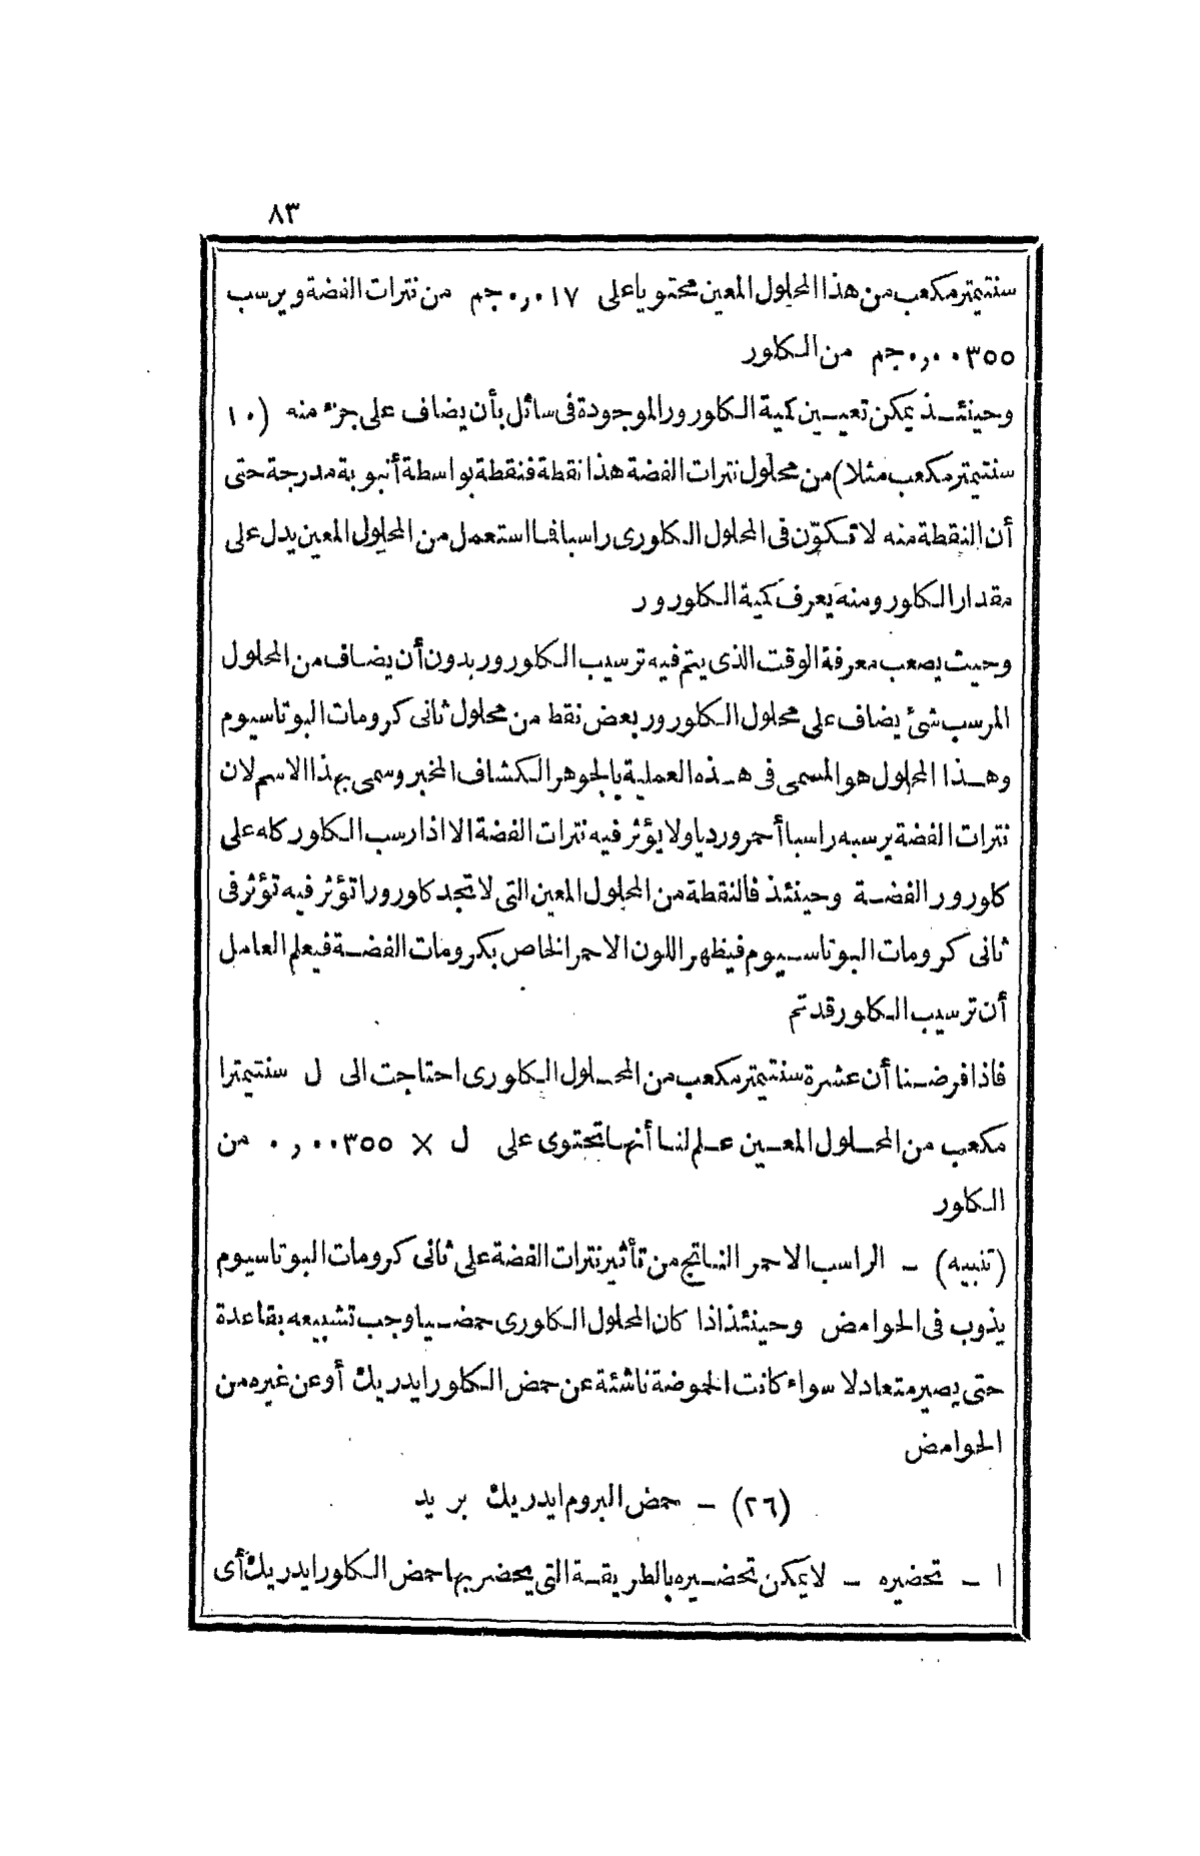 ٨٣
سنتيمتر مكعب من هذا المحلول المعين محتويا على ٠,٠١٧ جم من نترات الفضة ويرسب
٠,٠٠٣٥٥ جم من الكلور
وحينئذ يمكن تعيين كمية الكلورور الموجودة فى سائل بأن يضاف على جزء منه (١٠
سنتيمتر مكعب مثلا) من محلول نترات الفضة هذا نقطة فنقطة بواسطة أنبوبة مدرجة حتى
أن النقطة منه لا تكوّن فى المحلول الكلورى راسبا فما استعمل من المحلول المعين يدل على
مقدار الكلور ومنه يعرف كمية الكلورور
وحيث يصعب معرفة الوقت الذى يتم فيه ترسيب الكلورور بدون أن يضاف من المحلول
المرسب شئ يضاف على محلول الكلورور بعض نقط من محلول ثانى كرومات البوتاسيوم
وهذا المحلول هو المسمى فى هذه العملية بالجوهر الكشاف المخبر وسمى بهذا الاسم لان
نترات الفضة يرسبه راسبا أحمر ورديا ولا يؤثر فيه نترات الفضة الا اذا رسب الكلور كله على
كلورور الفضة وحينئذ فالنقطة من المحلول المعين التى لا تجد كلورورا تؤثر فيه تؤثر فى
ثانى كرومات البوتاسيوم فيظهر اللون الاحمر الخاص بكرومات الفضة فيعلم العامل
أن ترسيب الكلور قد تم
فاذا فرضنا أن عشرة سنتيمتر مكعب من المحلول الكلورى احتاجت الى ل سنتيمترا
مكعب من المحلول المعين علم لنا أنها تحتوى على ل × ٠,٠٠٣٥٥ من
الكلور
(تنبيه) - الراسب الاحمر الناتج من تأثير نترات الفضة على ثانى كرومات البوتاسيوم
يذوب فى الحوامض وحينئذ اذا كان المحلول الكلورى حمضيا وجب تشبيعه بقاعدة
حتى يصير متعادلا سواء كانت الحموضة ناشئة عن حمض الكلور ايدريك أو عن غيره من
الحوامض
(٢٦) - حمض البروم ايدريك بر يد
١ - تحضيره - لا يمكن تحضيره بالطريقة التى يحضر بها حمض الكلور ايدريك أى